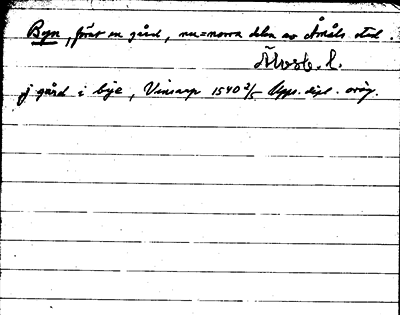 Byn, förr en gård, nu = norra delen av Åmåls stad.
Ämots. l.
j gård i bye, Vinsarp 1540 2/5 Upps. dipl. orig.